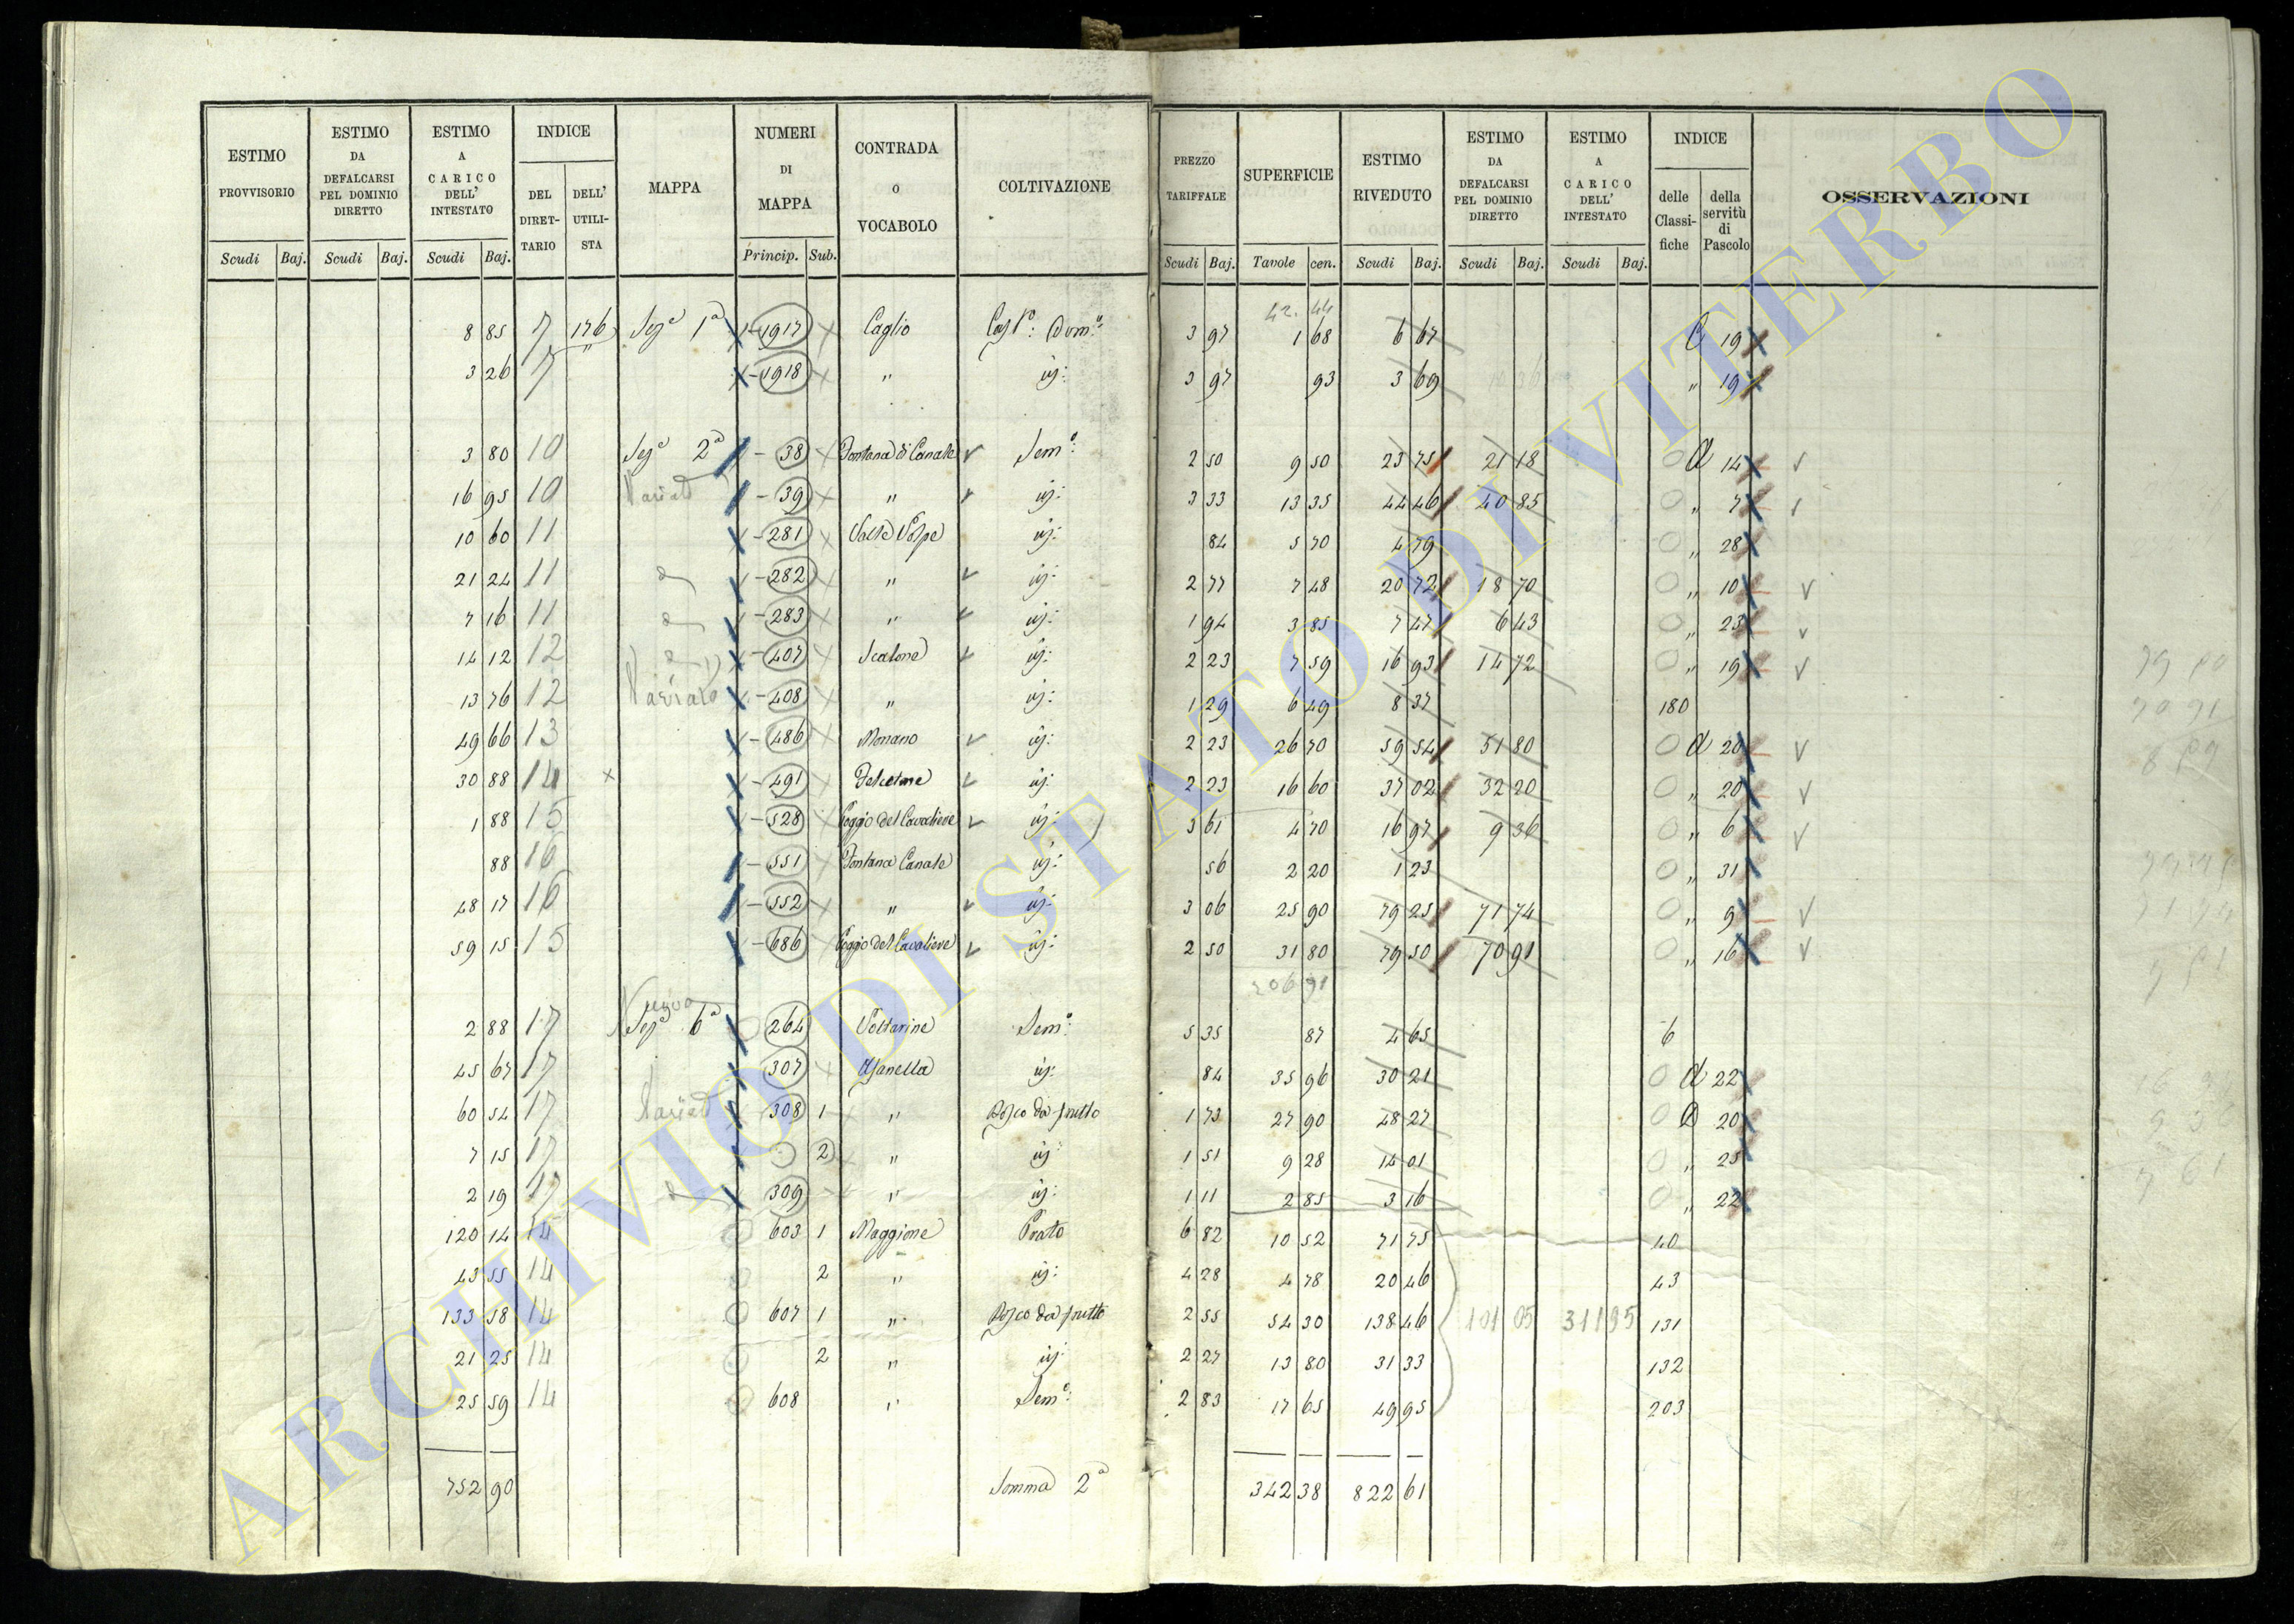 ESTIMO PROVVISORIO | ESTIMO DA DEFALCARSI PEL DOMINIO DIRETTO | ESTIMO A CARICO DELL' INTESTATO | INDICE | MAPPA | NUMERI DI MAPPA | CONTRADA O VOCABOLO | COLTIVAZIONE | PREZZO TARIFFALE | SUPERFICIE | ESTIMO RIVEDUTO | ESTIMO DA DEFALCARSI PEL DOMINIO DIRETTO | ESTIMO A CARICO DELL' INTESTATO | INDICE | OSSERVAZIONI
DEL DIRETTARIO | DELL' UTILISTA | delle Classifiche | della servitù di Pascolo
Scudi | Baj. | Scudi | Baj. | Scudi | Baj. | Princip. | Sub. | Scudi | Baj. | Tavole | cen. | Scudi | Baj. | Scudi | Baj. | Scudi | Baj.
42. 44
8 85 7 176 Sezᵉ 1ª 1917 Caglio Casᵗᵒ: Domᵒ: 3 97 1 68 6 67 C 19
3 26 7 " 1918 " id: 3 97 93 3 69 " 19
3 80 10 Sezᵉ 2ª 38 Fontana di Canale Semᵒ: 2 50 9 50 23 75 21 18 a 14
16 95 10 Variato 39 " id: 3 33 13 35 44 46 40 85 " 7
10 60 11 281 Valle Volpe id: 84 5 70 4 79 " 28
21 24 11 282 " id: 2 77 7 48 20 72 18 70 " 10
7 16 11 283 " id: 1 94 3 85 7 47 6 43 " 23
14 12 12 407 Scalone id: 2 23 7 59 16 93 14 72 " 19
13 76 12 Variato 408 " id: 1 29 6 49 8 37 180
49 66 13 486 Monano id: 2 23 26 70 59 54 51 80 a 20
30 88 14 × 491 id: 2 23 16 60 37 02 32 20 " 20
1 88 15 528 Poggio del Cavaliere id: 3 61 4 70 16 97 9 36 " 6
88 16 551 Fontana Canale id: 56 2 20 1 23 " 31
48 17 16 552 " id: 3 06 25 90 79 25 71 74 " 9
59 15 15 686 Poggio del Cavaliere id: 2 50 31 80 79 50 70 91 " 16
206 91
Nuova
2 88 17 Sezᵉ 6ª 264 Voltarine Semᵒ: 5 35 87 4 65 6
45 67 17 307 id: 84 35 96 30 21 a 22
60 54 17 Variato 308 1 " Bosco da frutto 1 73 27 90 48 27 20
7 15 17 2 " id: 1 51 9 28 14 01 " 25
2 19 17 309 " id: 1 11 2 85 3 16 " 22
120 14 14 603 1 Maggione Prato 6 82 10 52 71 75 40
43 55 14 2 " id: 4 28 4 78 20 46 43
133 58 14 607 1 " Bosco da frutto 2 55 54 30 138 46 101 05 311 95 131
21 25 14 2 " id: 2 27 13 80 31 33 132
25 59 14 608 " Semᵒ: 2 83 17 65 49 95 203
752 90 Somma 2ª 342 38 822 61
ARCHIVIO DI STATO DI VITERBO